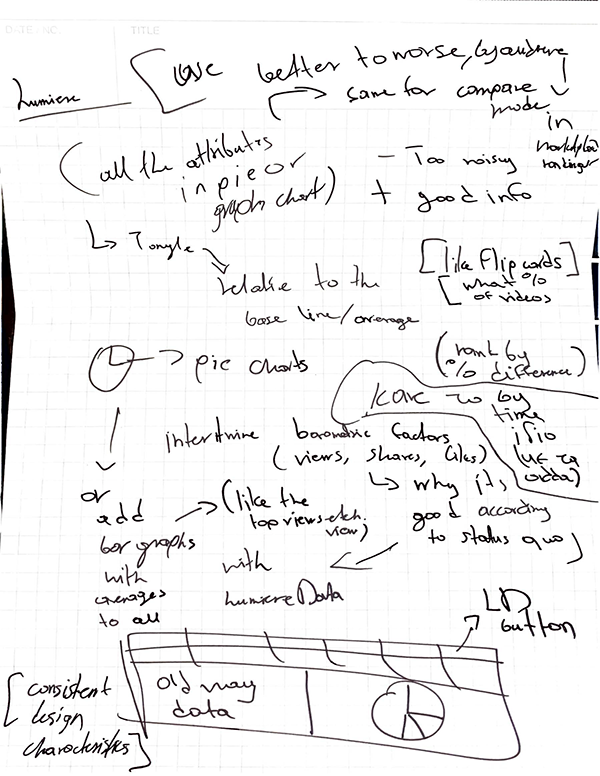 DATE / NO.
TITLE
Lumiere
better to worse, by audience
same for compare
mode
in
(all the attributes
in pie or
graph chart)
- Too noisy
+ good info
relative to the
base line/average
[like Flip cards]
[what %
of videos
pie charts
(rank by
% difference)
by
time
intertwine barometric factors
(views, shares, likes)
why its
good according
to status quo
or
add
bar graphs
with
averages
to all
(like the
top views
view)
with
Lumiere Data
LD
button
[consistent
design
characteristics]
old way
data